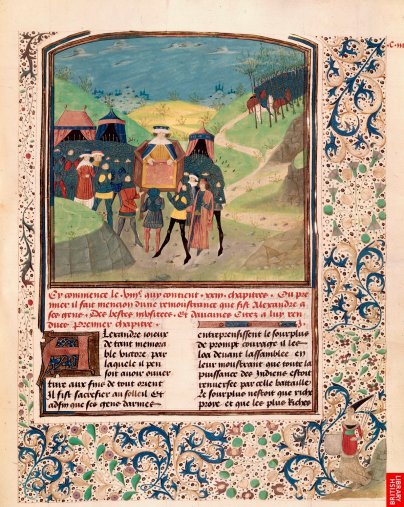 Cy commence le .ixe. qui contient .xxiii. chapitres. Ou pre
mier il fait mencion dune remonstrance que fist Alexandre a
ses gens. Des bestes
premier chapitre.
Alexandre ioieux
de tant memora
ble victoire par
laquele il
soit avoir ouver
ture aux fins de tout orient
Il fist sacrefier au soleil et
adfin que ses gens darmes
entreprensissent le sourplus
de prompt courage il les
loa devant lassamblee en
leur monstrant que toute la
puissance des Indiens estoit
renversee par celle bataille
Le sourplus nestoit que riche
proye et que les plus riches
BRITISH
LIBRARY